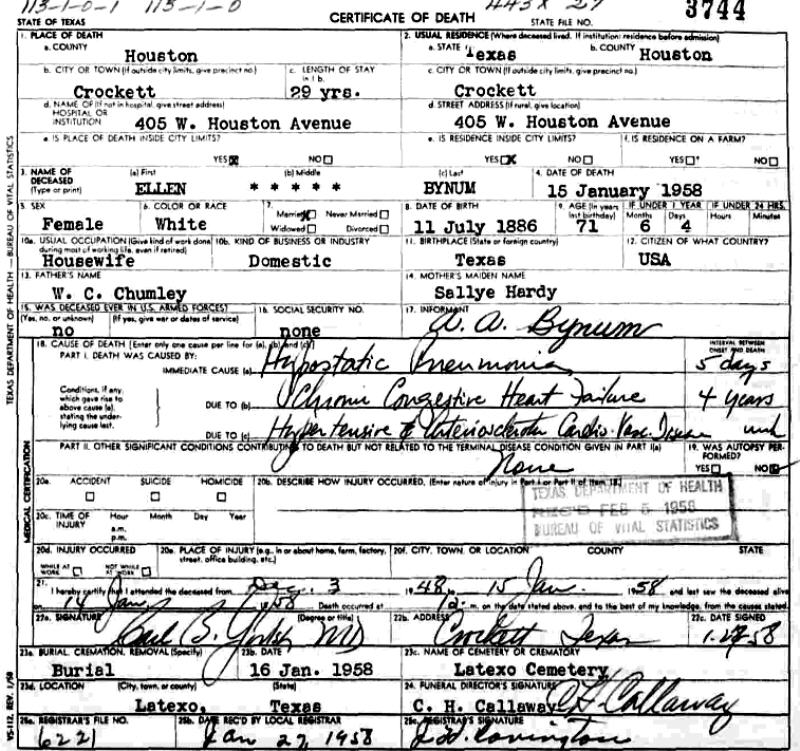 113-1-0-1 113-1-0 443X 27 3744
STATE OF TEXAS CERTIFICATE OF DEATH STATE FILE NO.
1. PLACE OF DEATH 2. USUAL RESIDENCE (Where deceased lived. If institution: residence before admission)
a. COUNTY Houston a. STATE Texas b. COUNTY Houston
b. CITY OR TOWN (If outside city limits, give precinct no.) c. LENGTH OF STAY in 1b. c. CITY OR TOWN (If outside city limits, give precinct no.)
Crockett 29 yrs. Crockett
d. NAME OF (If not in hospital, give street address) HOSPITAL OR INSTITUTION d. STREET ADDRESS (If rural, give location)
405 W. Houston Avenue 405 W. Houston Avenue
e. IS PLACE OF DEATH INSIDE CITY LIMITS? e. IS RESIDENCE INSIDE CITY LIMITS? f. IS RESIDENCE ON A FARM?
YES NO YES NO YES NO
3. NAME OF DECEASED (Type or print) (a) First (b) Middle (c) Last 4. DATE OF DEATH
ELLEN * * * * * BYNUM 15 January 1958
5. SEX 6. COLOR OR RACE 7. Married Never Married 8. DATE OF BIRTH 9. AGE (In years last birthday) IF UNDER 1 YEAR IF UNDER 24 HRS.
Widowed Divorced Months Days Hours Minutes
Female White 11 July 1886 71 6 4
10a. USUAL OCCUPATION (Give kind of work done during most of working life, even if retired) 10b. KIND OF BUSINESS OR INDUSTRY 11. BIRTHPLACE (State or foreign country) 12. CITIZEN OF WHAT COUNTRY?
Housewife Domestic Texas USA
13. FATHER'S NAME 14. MOTHER'S MAIDEN NAME
W. C. Chumley Sallye Hardy
15. WAS DECEASED EVER IN U.S. ARMED FORCES? 16. SOCIAL SECURITY NO. 17. INFORMANT
(Yes, no, or unknown) (If yes, give war or dates of service)
no none Bynum
18. CAUSE OF DEATH [Enter only one cause per line for (a), (b) and (c)] INTERVAL BETWEEN ONSET AND DEATH
PART I. DEATH WAS CAUSED BY:
IMMEDIATE CAUSE (a) Hypostatic Pneumonia 5 days
Conditions, if any, which gave rise to above cause (a), stating the underlying cause last.
DUE TO (b) Chronic Congestive Heart Failure 4 years
DUE TO (c) Hypertensive & Arteriosclerotic Cardio-Vasc. Disease unk
PART II. OTHER SIGNIFICANT CONDITIONS CONTRIBUTING TO DEATH BUT NOT RELATED TO THE TERMINAL DISEASE CONDITION GIVEN IN PART I(a) 19. WAS AUTOPSY PERFORMED?
None YES NO
20a. ACCIDENT SUICIDE HOMICIDE 20b. DESCRIBE HOW INJURY OCCURRED. (Enter nature of injury in Part I or Part II of Item 18.)
TEXAS DEPARTMENT OF HEALTH
REC'D FEB 5 1958
BUREAU OF VITAL STATISTICS
20c. TIME OF INJURY Hour Month Day Year
a.m.
p.m.
20d. INJURY OCCURRED 20e. PLACE OF INJURY (e.g., in or about home, farm, factory, street, office building, etc.) 20f. CITY, TOWN, OR LOCATION COUNTY STATE
WHILE AT WORK NOT WHILE AT WORK
21. I hereby certify that I attended the deceased from Dec. 3 1948 to 15 Jan. 1958 and last saw the deceased alive
on 14 Jan 1958 Death occurred at 12 m. on the date stated above, and to the best of my knowledge, from the causes stated.
22a. SIGNATURE (Degree or title) 22b. ADDRESS 22c. DATE SIGNED
MD Crockett Texas
23a. BURIAL, CREMATION, REMOVAL (Specify) 23b. DATE 23c. NAME OF CEMETERY OR CREMATORY
Burial 16 Jan. 1958 Latexo Cemetery
23d. LOCATION (City, town, or county) (State) 24. FUNERAL DIRECTOR'S SIGNATURE
Latexo, Texas C. H. Callaway Callaway
25a. REGISTRAR'S FILE NO. 25b. DATE REC'D BY LOCAL REGISTRAR 25c. REGISTRAR'S SIGNATURE
6221 Jan 27, 1958
TEXAS DEPARTMENT OF HEALTH — BUREAU OF VITAL STATISTICS
MEDICAL CERTIFICATION
VS-112, REV. 1/58